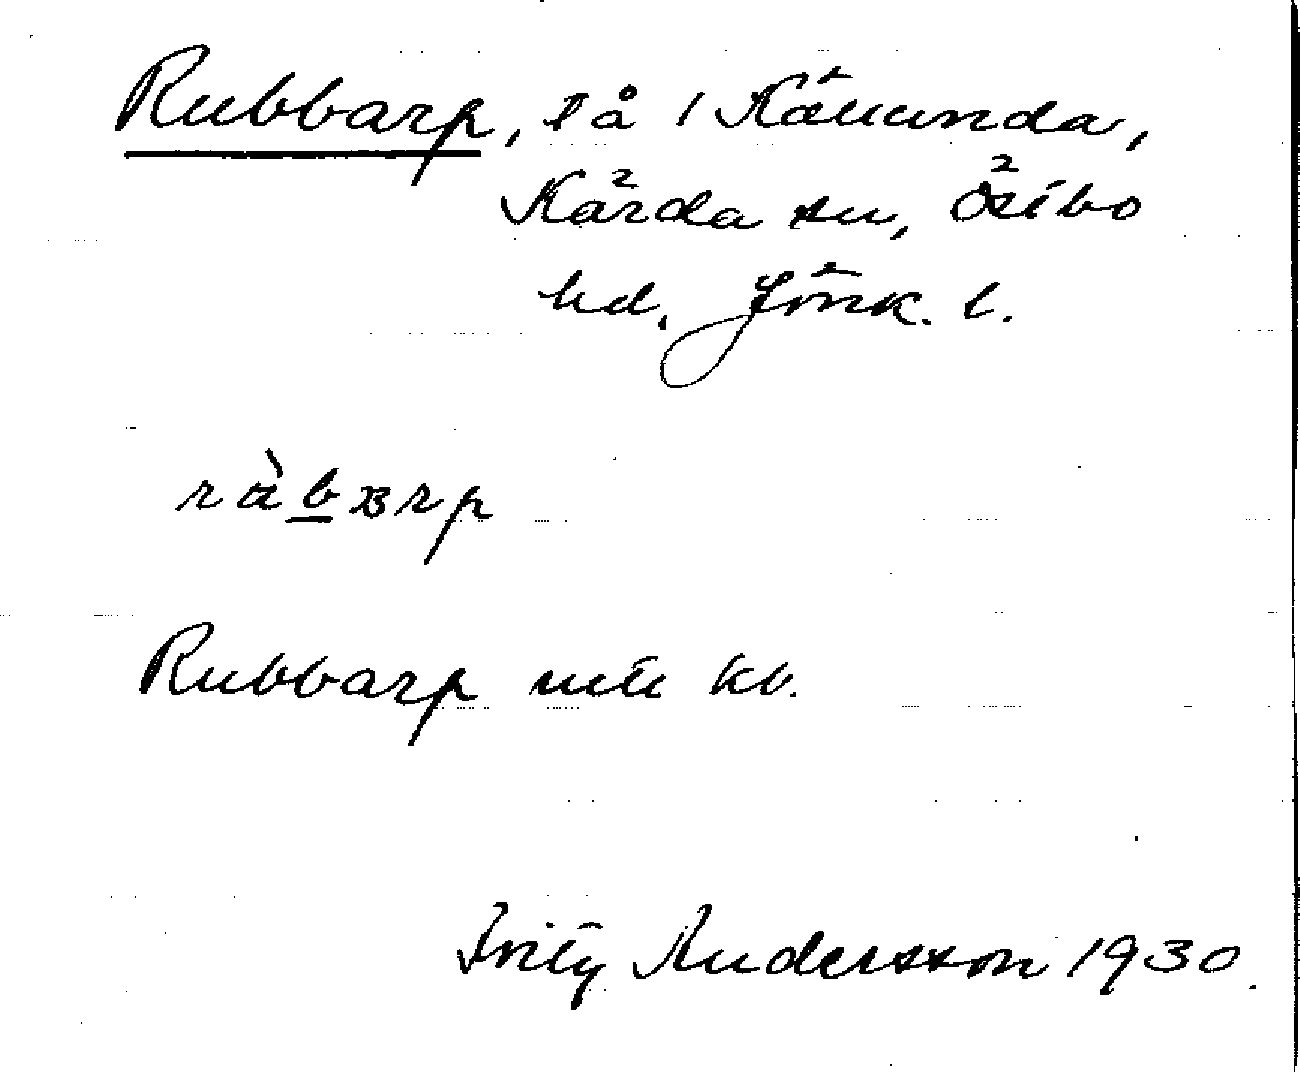 Rubbarp, på i Kävunda,
Kärda sn, Östbo
hd, Jönk. l.
ràbʙrp
Rubbarp utt kb.
Fritz Andersson 1930.